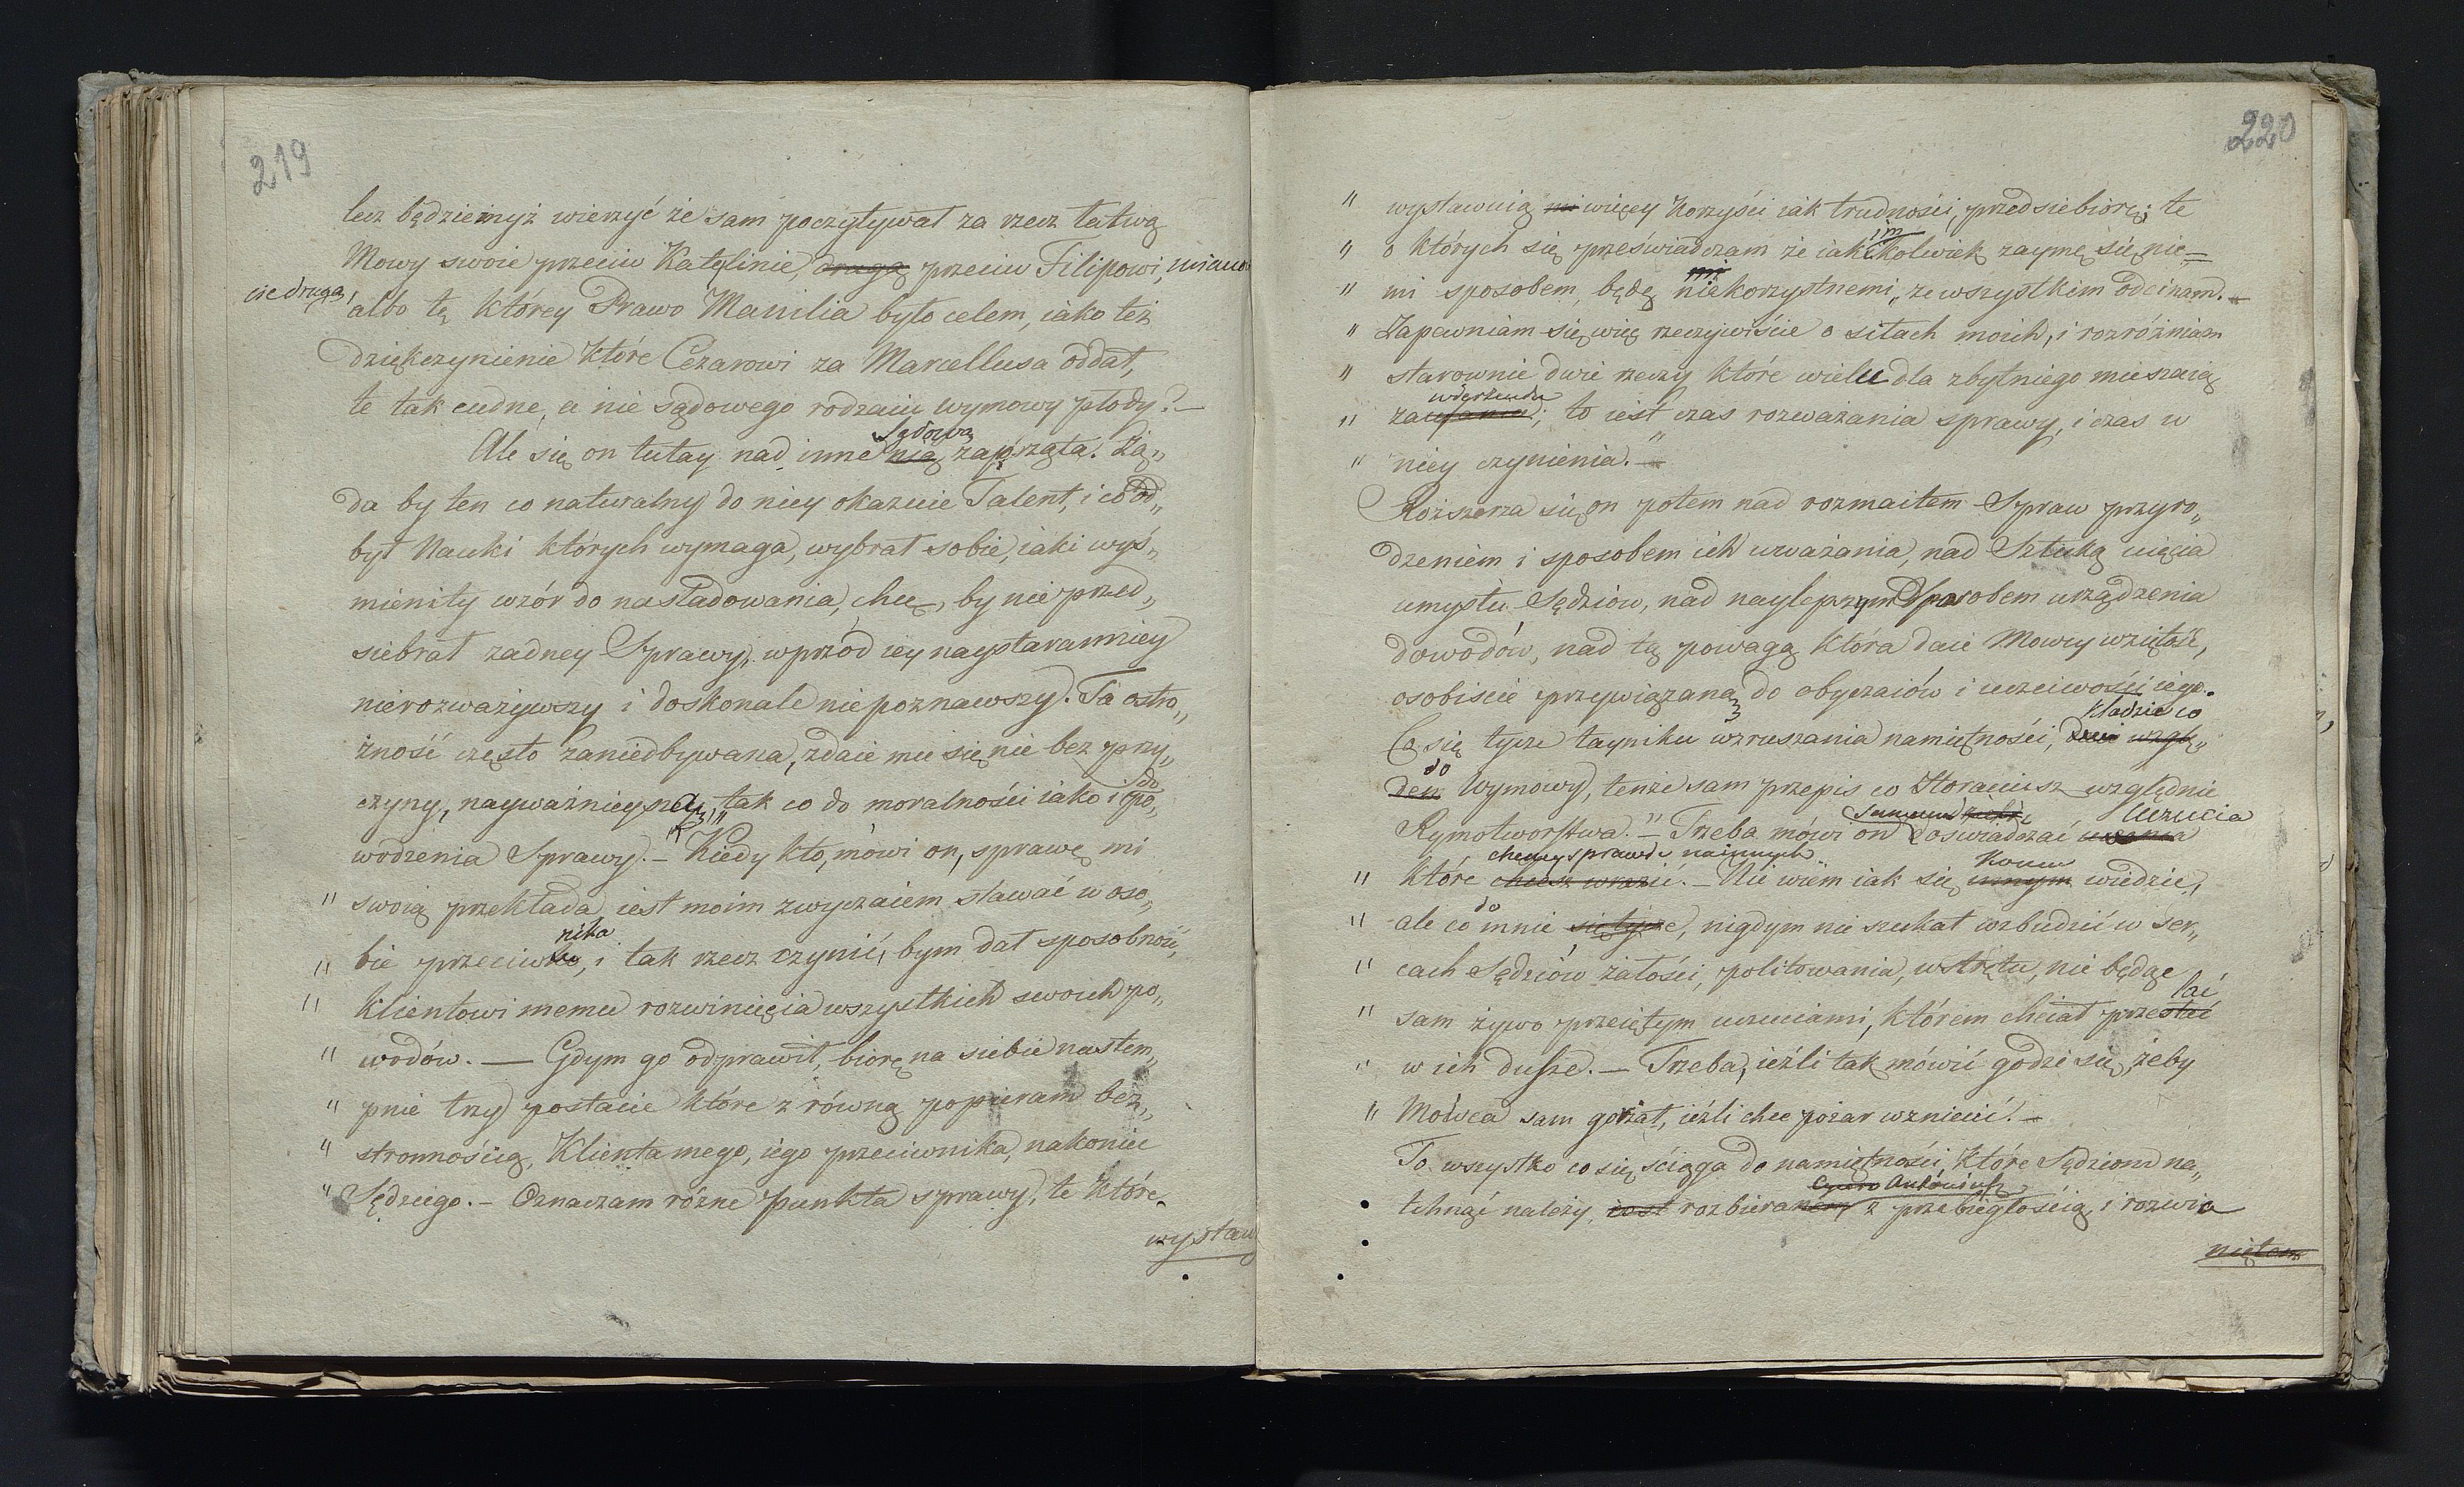 219
lecz będziemyż wierzyć że sam poczytywał za rzecz łatwą
Mowy swoie przeciw Katylinie, drugą przeciw Filipowi, miano
cie drugą,
albo tę którey Prawo Manilia było celem, iako też
dziękczynienie które Cezarowi za Marcellusa oddał,
te tak cudne, a nie sądowego rodzaiu wymowy płody? —
Sądową
Ale się on tutay nad inne nią zaprząta. Żą„
da by ten co naturalny do niey okazuie Talent, i co od„
był Nauki których wymaga, wybrał sobie, iaki wyś„
mienity wzór do nasladowania, chce, by nie przed„
siebrał żadney Sprawy, wprzód iey naystaranniey
nierozważywszy i doskonale nie poznawszy. Ta ostro„
żność często zaniedbywana, zdaie mu się nie bez przy„
do
czyny, nayważnieyszą, tak co do moralności iako i po„
wodzenia Sprawy. — Kiedy kto, mówi on, sprawę mi
" swoią przekłada, iest moim zwyczaiem stawać w oso„
nika
" bie przeciw, i tak rzecz czynić, bym dał sposobność,
" Klientowi memu rozwinięcia wszystkich swoich po„
" wodów. — Gdym go odprawił, biorę na siebie nastem„
" pnie trzy postacie które z równą popieram bez„
" stronnością, Klienta mego, iego przeciwnika, nakoniec
" Sędziego. — Oznaczam różne punkta sprawy, te które
wystaw
220
" wystawuią mi więcey korzyści iak trudności, przedsiebiorę; te
im
" o których się przeświadczam że iakikolwiek zaymę się nie=
" mi sposobem, będą niekorzystnemi, ze wszystkim odcinam. —
" Zapewniam się więc rzeczywiście o siłach moich, i rozróżniam
" starownie dwie rzeczy które wielu dla zbytniego mieszaią
" zaufania; to iest czas rozważania sprawy, i czas w
" niey czynienia." —
Rozszerza się on potem nad rozmaitem Spraw przyro„
dzeniem i sposobem ich uważania, nad Sztuką uięcia
umysłu Sędziów, nad naylepszym Sposobem urządzenia
dowodów, nad tą powagą która daie Mowcy wziętość,
osobiscie przywiązaną do obyczaiów i uczciwości iego.
kładzie co
Co się tycze tayniku wzruszania namiętności, daie wzglę„
do
dem Wymowy, tenże sam przepis co Horaciusz względnie
Uczucia
Rymotworstwa. " — Trzeba mówi on doswiadczać
chcemy sprawdz na innych
" które chcesz wrazić. — Nie wiem iak się innym wiedzie,
do
" ale co mnie się tycze, nigdym nie szukał wzbudzić w ser„
" cach Sędziów żałości, politowania, wstrętu, nie będąc
lać
" sam żywo przeiętym uczuciami, którem chciał przestać
" w ich dusze. — Trzeba, ieźli tak mówić godzi się, żeby
" Mówca sam gorzał, ieźli chce pożar wzniecić! —
To wszystko co się ściąga do namiętności, które Sędziom na„
Cycero Antoniusz
tchnąć należy, iest rozbieranem z przebiegłością, i rozwia
niętem